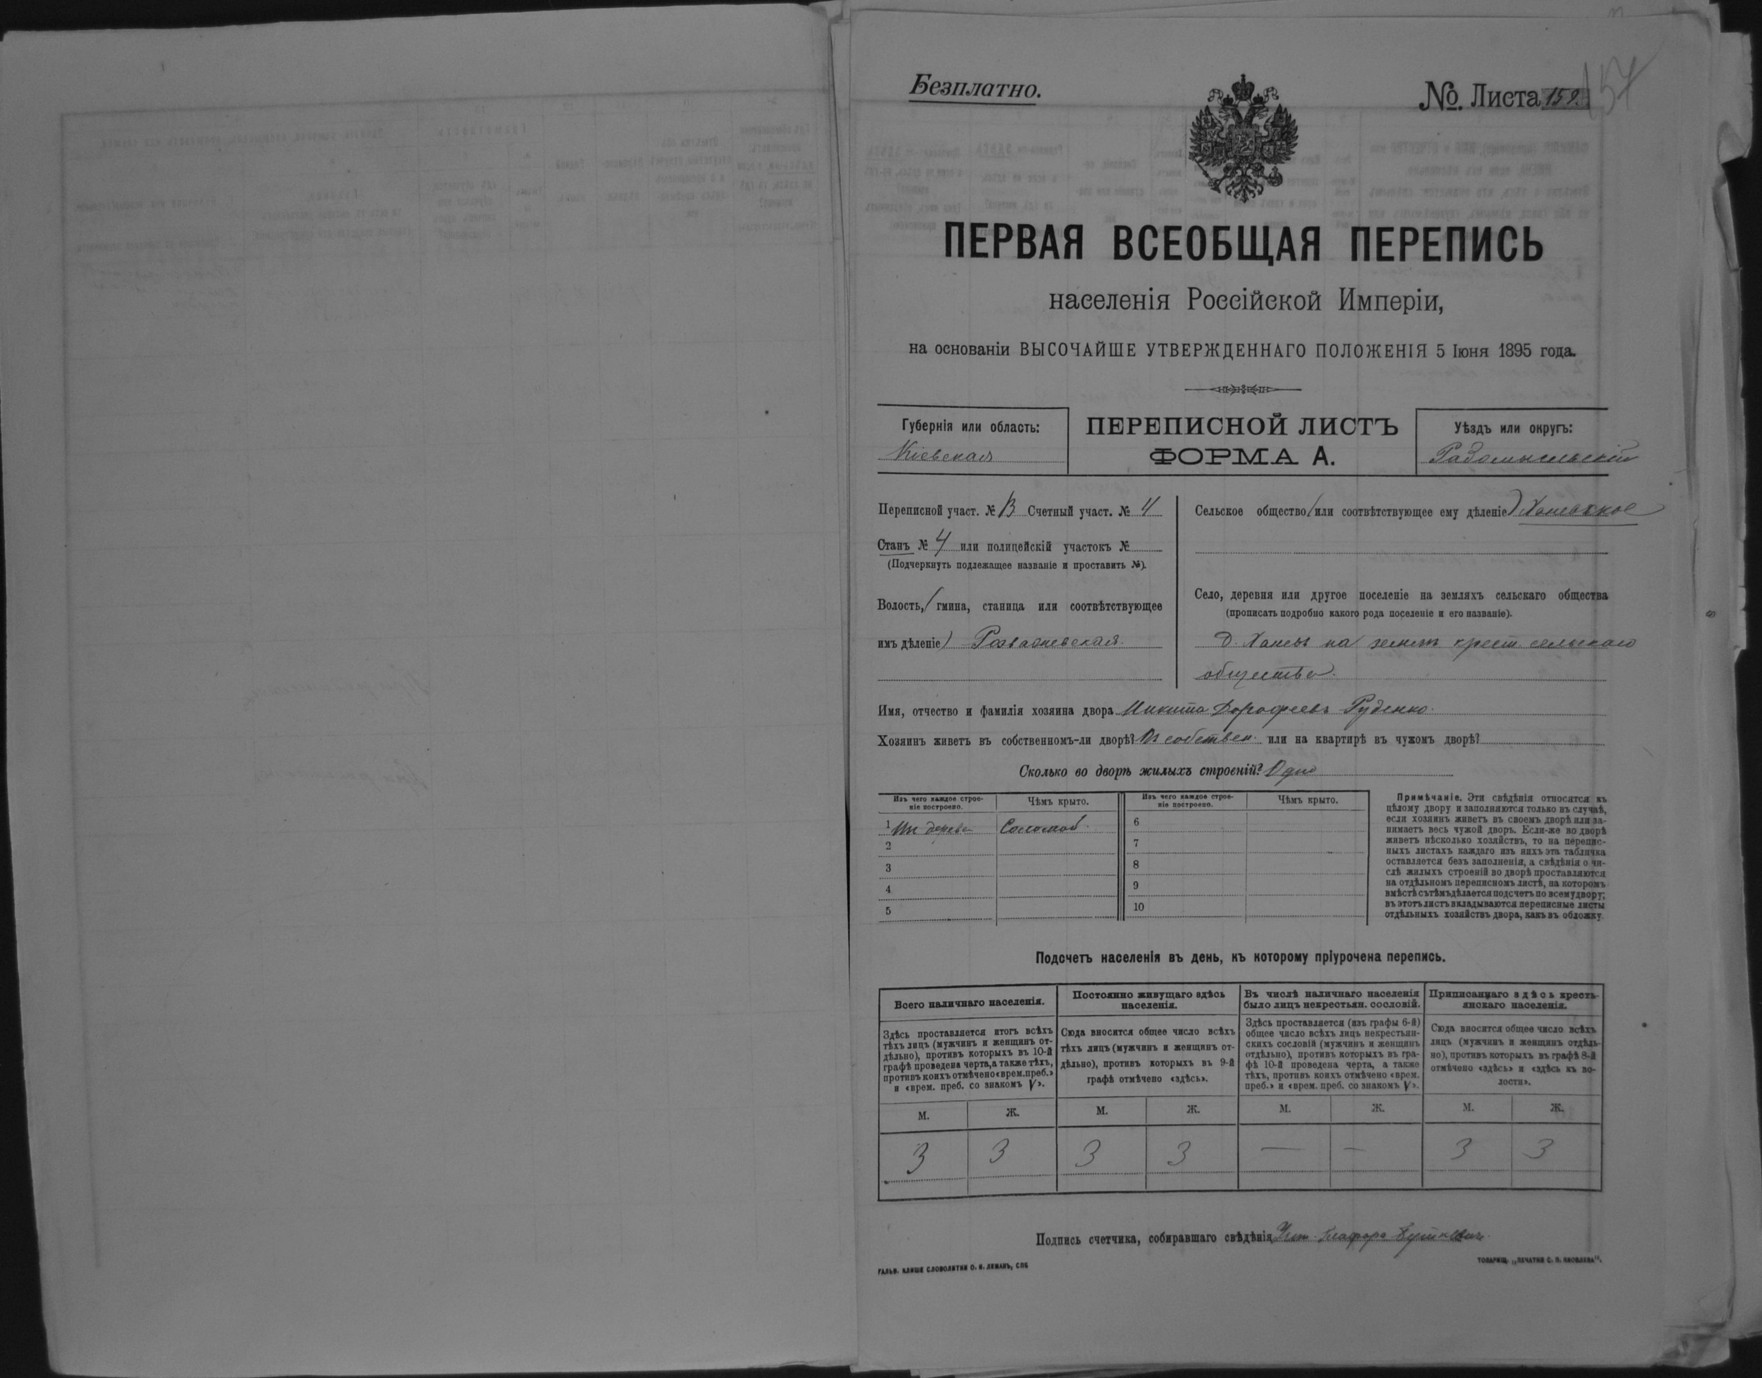 Безплатно.
№ Листа 159. 157
ПЕРВАЯ ВСЕОБЩАЯ ПЕРЕПИСЬ
населенія Россійской Имперіи,
на основаніи ВЫСОЧАЙШЕ УТВЕРЖДЕННАГО ПОЛОЖЕНІЯ 5 Іюня 1895 года.
Губернія или область:
Кіевская
ПЕРЕПИСНОЙ ЛИСТЪ
ФОРМА А.
Уѣздъ или округъ:
Радомысльскій
Переписной участ. № 13 Счетный участ. № 4
Станъ № 4 или полицейскій участокъ №
(Подчеркнуть подлежащее названіе и проставить №).
Волость, (гмина, станица или соотвѣтствующее
имъ дѣленіе)
Сельское общество (или соотвѣтствующее ему дѣленіе)
Село, деревня или другое поселеніе на земляхъ сельскаго общества
(прописать подробно какого рода поселеніе и его названіе).
на земле крест. сельскаго
общества.
Имя, отчество и фамилія хозяина двора Микита Дорофеевъ Руденко.
Хозяинъ живетъ въ собственномъ-ли дворѣ? Въ собствен. или на квартирѣ въ чужомъ дворѣ?
Сколько во дворѣ жилыхъ строеній? Одно
Изъ чего каждое строе-
ніе построено.
Чѣмъ крыто.
1 Изъ дерева Соломой.
2
3
4
5
Изъ чего каждое строе-
ніе построено.
Чѣмъ крыто.
6
7
8
9
10
Примѣчаніе. Эти свѣдѣнія относятся къ
цѣлому двору и заполняются только въ случаѣ,
если хозяинъ живетъ въ своемъ дворѣ или за-
нимаетъ весь чужой дворъ. Если-же во дворѣ
живетъ нѣсколько хозяйствъ, то на перепис-
ныхъ листахъ каждаго изъ нихъ эта табличка
оставляется безъ заполненія, а свѣдѣнія о чи-
слѣ жилыхъ строеній во дворѣ проставляются
на отдѣльномъ переписномъ листѣ, на которомъ
вмѣстѣ съ тѣмъ дѣлается подсчетъ по всему двору;
въ этотъ листъ вкладываются переписные листы
отдѣльныхъ хозяйствъ двора, какъ въ обложку.
Подсчетъ населенія въ день, къ которому пріурочена перепись.
Всего наличнаго населенія.
Здѣсь проставляется итогъ всѣхъ
тѣхъ лицъ (мужчинъ и женщинъ от-
дѣльно), противъ которыхъ въ 10-й
графѣ проведена черта, а также тѣхъ,
противъ коихъ отмѣчено «врем. преб.»
и «врем. преб. со знакомъ V».
Постоянно живущаго здѣсь
населенія.
Сюда вносится общее число всѣхъ
тѣхъ лицъ (мужчинъ и женщинъ от-
дѣльно), противъ которыхъ въ 9-й
графѣ отмѣчено «здѣсь».
Въ числѣ наличнаго населенія
было лицъ некрестьян. сословій.
Здѣсь проставляется (изъ графы 6-й)
общее число всѣхъ лицъ некрестьян-
скихъ сословій (мужчинъ и женщинъ
отдѣльно), противъ которыхъ въ гра-
фѣ 10-й проведена черта, а также
тѣхъ, противъ коихъ отмѣчено «врем.
преб.» и «врем. преб. со знакомъ V».
Приписаннаго здѣсь кресть-
янскаго населенія.
Сюда вносится общее число всѣхъ
лицъ (мужчинъ и женщинъ отдѣль-
но), противъ которыхъ въ графѣ 8-й
отмѣчено «здѣсь» и «здѣсь къ во-
лости».
М. Ж. М. Ж. М. Ж. М. Ж.
3 3 3 3 — — 3 3
Подпись счетчика, собиравшаго свѣдѣнія
ГАЛЬВ. КЛИШЕ СЛОВОЛИТНИ О. И. ЛЕМАНЪ, СПБ
ТОВАРИЩ. „ПЕЧАТНИ С. П. ЯКОВЛЕВА“.